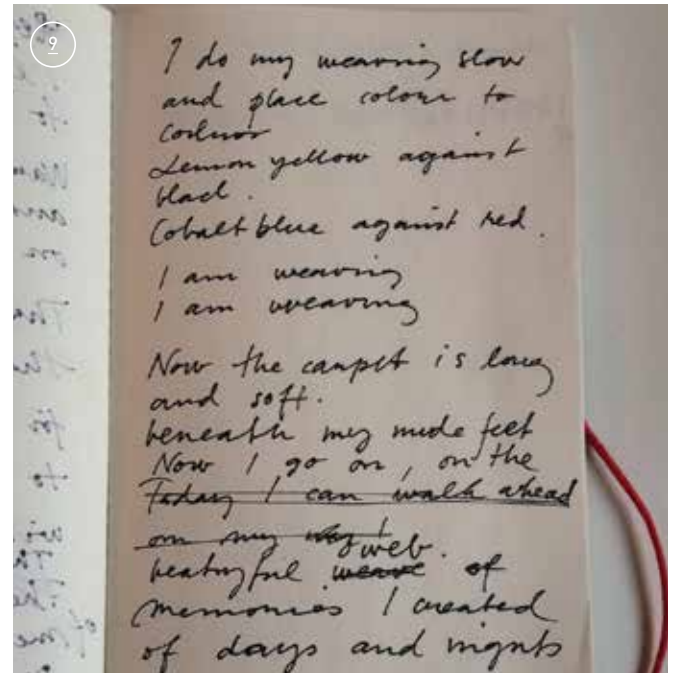 9
I do my weaving slow
and place colour to
colour
Lemon yellow against
black.
Cobalt blue against red.
I am weaving
I am weaving
Now the carpet is long
and soft.
beneath my nude feet
Now I go on, on the
Today I can walk ahead
on my way
web.
beatyful weave of
memories I created
of days and nights